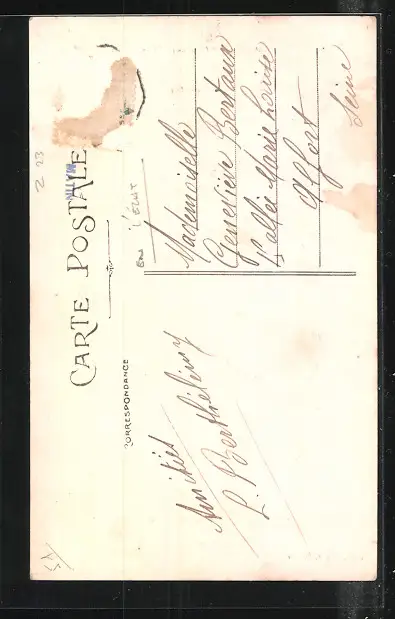 CARTE POSTALE
CORRESPONDANCE
Amitiés
L. Berthélémy
Mademoiselle
Geneviève Bertaux
1 allée Marie Louise
Alfort
Seine
Z 23
en l'état